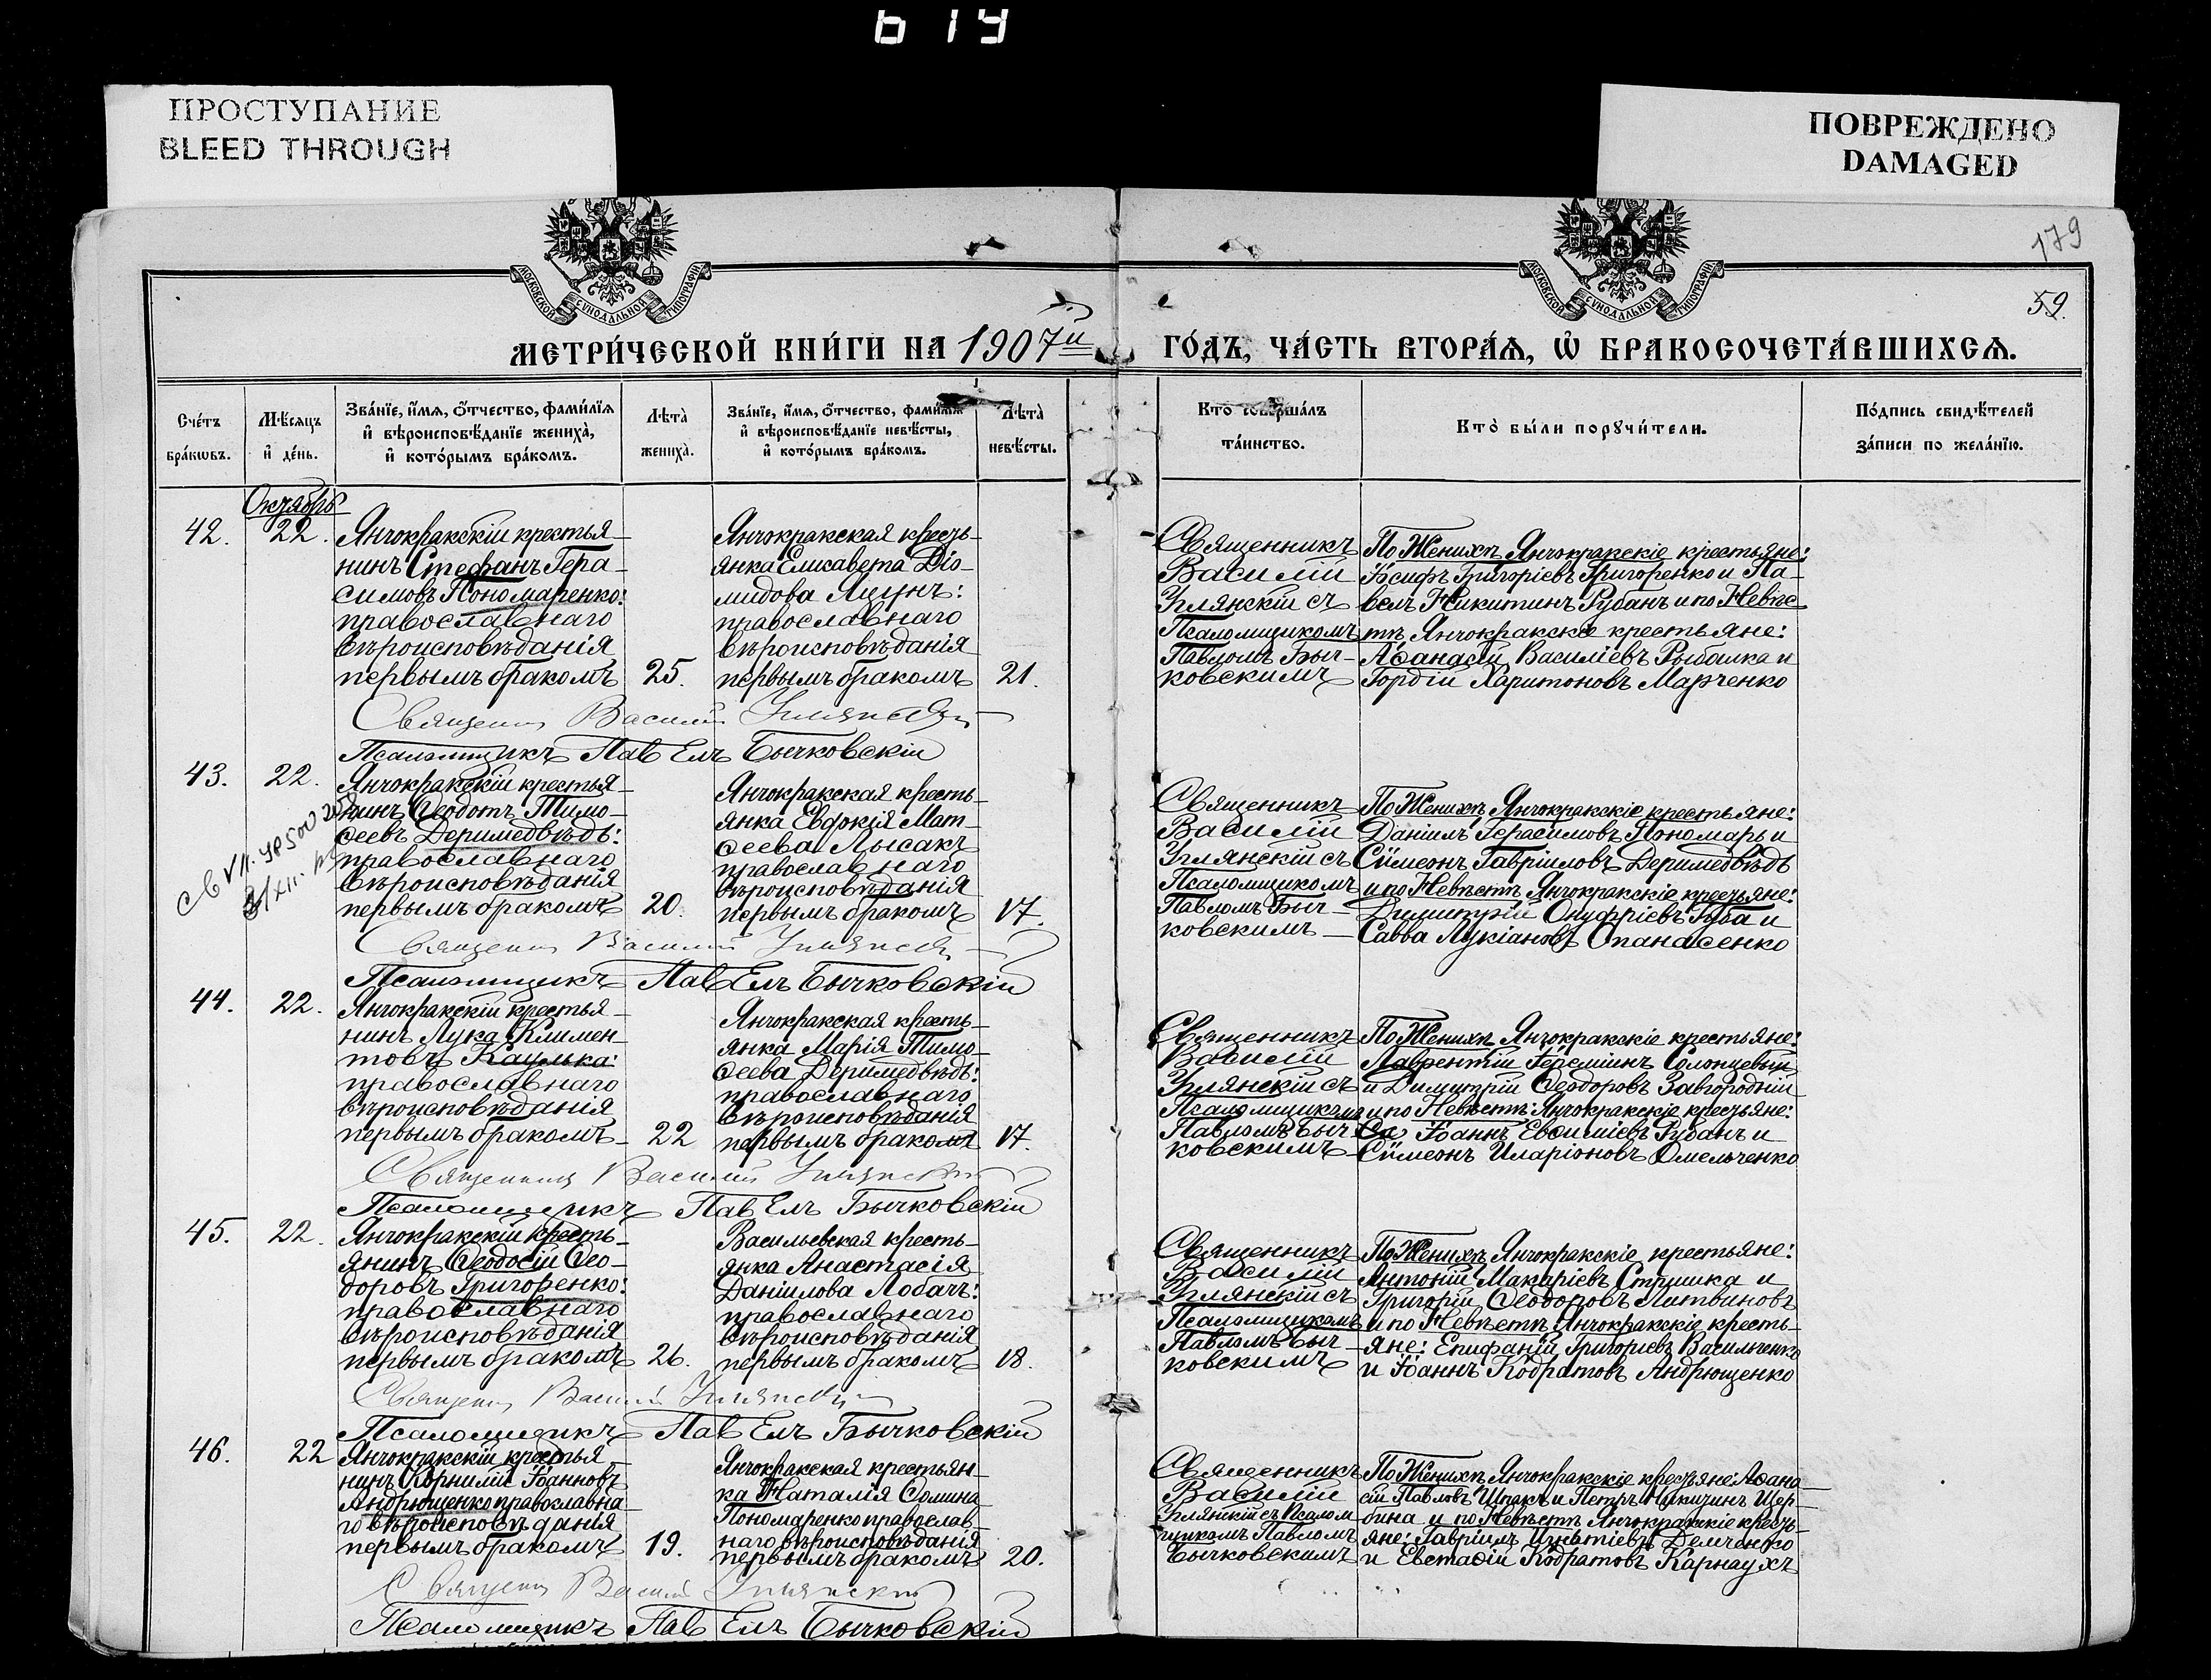 619
ПРОСТУПАНИЕ
BLEED THROUGH
ПОВРЕЖДЕНО
DAMAGED
МОСКОВСКОЙ СѴНОДАЛЬНОЙ ТИПОГРАФІИ
МОСКОВСКОЙ СѴНОДАЛЬНОЙ ТИПОГРАФІИ
179
59.
МЕТРИ́ЧЕСКОЙ КНИ́ГИ НА 1907й ГО́ДЪ, ЧА́СТЬ ВТОРА́Ѧ, Ѡ БРАКОСОЧЕТА́ВШИХСѦ.
Сче́тъ бра́кѡвъ.
Мѣ́сяцъ и де́нь.
Зва́нїе, и́мѧ, о́тчество, фами́лїѧ и вѣроисповѣ́данїе жениха̀, и кото́рымъ бра́комъ.
Лѣта̀ жениха̀.
Зва́нїе, и́мѧ, о́тчество, фами́лїѧ и вѣроисповѣ́данїе невѣ́сты, и кото́рымъ бра́комъ.
Лѣта̀ невѣ́сты.
Кто̀ соверша́лъ та́инство.
Кто̀ бы́ли порꙋчи́тели.
По́дпись свидѣ́телей за́писи по жела́нїю.
Октябрь
42.
22.
Янчокракскій крестья-
нинъ Стефанъ Гера-
симовъ Пономаренко:
православнаго
вѣроисповѣданія
первымъ бракомъ
25.
Янчокракская кресть-
янка Елисавета Діо-
мидова Яцунъ:
православнаго
вѣроисповѣданія
первымъ бракомъ
21.
Священникъ
Василій
Углянскій съ
Псаломщикомъ
Павломъ Быч-
ковскимъ
По Женихѣ Янчокракскіе крестьяне:
Іосифъ Григоріевъ Григоренко и Па-
велъ Никитинъ Рубанъ и по Невѣс
тѣ Янчокракскіе крестьяне:
Аѳанасій Василіевъ Рыбалка и
Гордій Харитоновъ Марченко
Священникъ Василій Углянскій
Псаломщикъ Павелъ Бычковскій
43.
22.
Янчокракскій крестья-
нинъ Ѳеодотъ Тимо-
ѳеевъ Деримедвѣдь:
православнаго
вѣроисповѣданія
первымъ бракомъ
20.
Янчокракская кресть-
янка Евдокія Мат-
ѳеева Лысакъ
православнаго
вѣроисповѣданія
первымъ бракомъ
17.
Священникъ
Василій
Углянскій съ
Псаломщикомъ
Павломъ Быч-
ковскимъ
По Женихѣ Янчокракскіе крестьяне:
Даніилъ Герасимовъ Пономарь и
Сѵмеонъ Гавріиловъ Деримедвѣдь
и по Невѣстѣ Янчокракскіе крестьяне:
Димитрій Онуфріевъ Губа и
Савва Лукіановъ Опанасенко
Священникъ Василій Углянскій
Псаломщикъ Павелъ Бычковскій
44.
22.
Янчокракскій крестья-
нинъ Лука Климен-
товъ Кацулька:
православнаго
вѣроисповѣданія
первымъ бракомъ
22
Янчокракская кресть-
янка Марія Тимо-
ѳеева Деримедвѣдь:
православнаго
вѣроисповѣданія
первымъ бракомъ
17.
Священникъ
Василій
Углянскій съ
Псаломщикомъ
Павломъ Быч
ковскимъ
По Женихѣ Янчокракскіе крестьяне:
Лаврентій Іереміинъ Солонцевый
и Димитрій Ѳеодоровъ Завгородній
и по Невѣстѣ: Янчокракскіе крестьяне:
Іоаннъ Евѳиміевъ Рубанъ и
Сѵмеонъ Иларіоновъ Омельченко
Священникъ Василій Углянскій
Псаломщикъ Павелъ Бычковскій
45.
22.
Янчокракскій кресть-
янинъ Ѳеодосій Ѳео-
доровъ Григоренко:
православнаго
вѣроисповѣданія
первымъ бракомъ
26.
Васильевская кресть-
янка Анастасія
Даніилова Лобачъ:
православнаго
вѣроисповѣданія
первымъ бракомъ
18.
Священникъ
Василій
Углянскій съ
Псаломщикомъ
Павломъ Быч-
ковскимъ
По Женихѣ Янчокракскіе крестьяне:
Антоній Макаріевъ Стришка и
Григорій Ѳеодоровъ Литвиновъ
и по Невѣстѣ Янчокракскіе кресть-
яне: Епифаній Григоріевъ Васильченко
и Іоаннъ Кодратовъ Андрющенко
Священникъ Василій Углянскій
Псаломщикъ Павелъ Бычковскій
46.
22
Янчокракскій крестья-
нинъ Корнилій Іоанновъ
Андрющенко православна-
го вѣроисповѣданія
первымъ бракомъ
19.
Янчокракская крестьян-
ка Наталія Сомина
Пономаренко православ-
наго вѣроисповѣданія
первымъ бракомъ
20.
Священникъ
Василій
Углянскій съ Псалом-
щикомъ Павломъ
Бычковскимъ
По Женихѣ Янчокракскіе крестьяне: Аѳана-
сій Павловъ Шпакъ и Петръ Никитинъ Щер-
бина и по Невѣстѣ Янчокракскіе кресть-
яне: Гавріилъ Игнатіевъ Демченко
и Евстаѳій Кодратовъ Карнаухъ
Священникъ Василій Углянскій
Псаломщикъ Павелъ Бычковскій